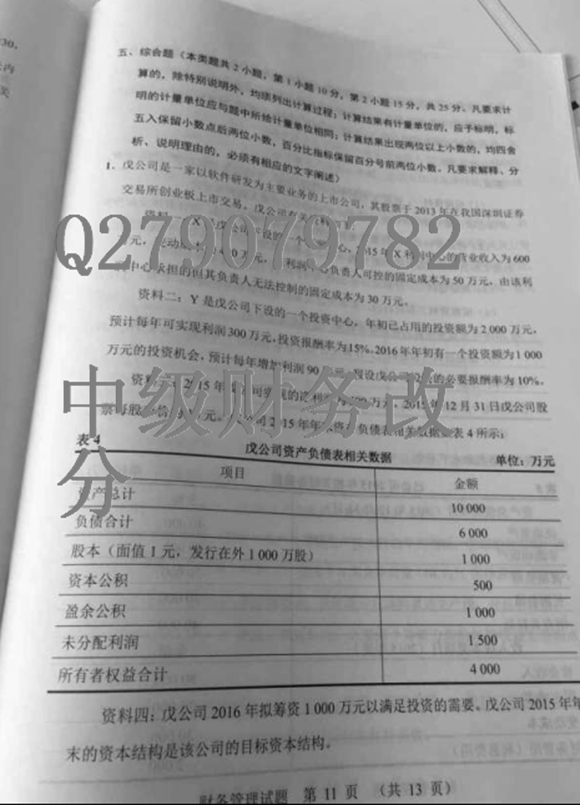 五、综合题(本类题共2小题,第1小题10分,第2小题15分,共25分。凡要求计
算的,除特别说明外,均须列出计算过程;计算结果有计量单位的,应予标明,标
明的计量单位应与题中所给计量单位相同;计算结果出现两位以上小数的,均四舍
五入保留小数点后两位小数,百分比指标保留百分号前两位小数。凡要求解释、分
析、说明理由的,必须有相应的文字阐述)
1. 戊公司是一家以软件研发为主要业务的上市公司,其股票于2013年在我国深圳证券
交易所创业板上市交易。戊公司有关
资料一:X是戊公司下设的一个 中心,2015年X利润中心的营业收入为600
元,变动成本 400万元, 利润 心负责人可控的固定成本为50万元,由该利
中心承担的但其负责人无法控制的固定成本为30万元。
资料二:Y是戊公司下设的一个投资中心,年初已占用的投资额为2 000万元,
预计每年可实现利润300万元,投资报酬率为15%。2016年年初有一个投资额为1 000
万元的投资机会,预计每年增加利润90 假设戊公司 的必要报酬率为10%。
资料三:2015年 实现的净利 万元,2015年12月31日戊公司股
票每股 元。 公司2015年年末资产负债表相关数据如表4所示:
Q279079782
中级财务改
分
表4
戊公司资产负债表相关数据
单位:万元
项目 金额
资产总计 10 000
负债合计 6 000
股本(面值1元,发行在外1 000万股) 1 000
资本公积 500
盈余公积 1 000
未分配利润 1 500
所有者权益合计 4 000
资料四:戊公司2016年拟筹资1 000万元以满足投资的需要。戊公司2015年年
末的资本结构是该公司的目标资本结构。
财务管理试题 第 11 页 (共 13 页)